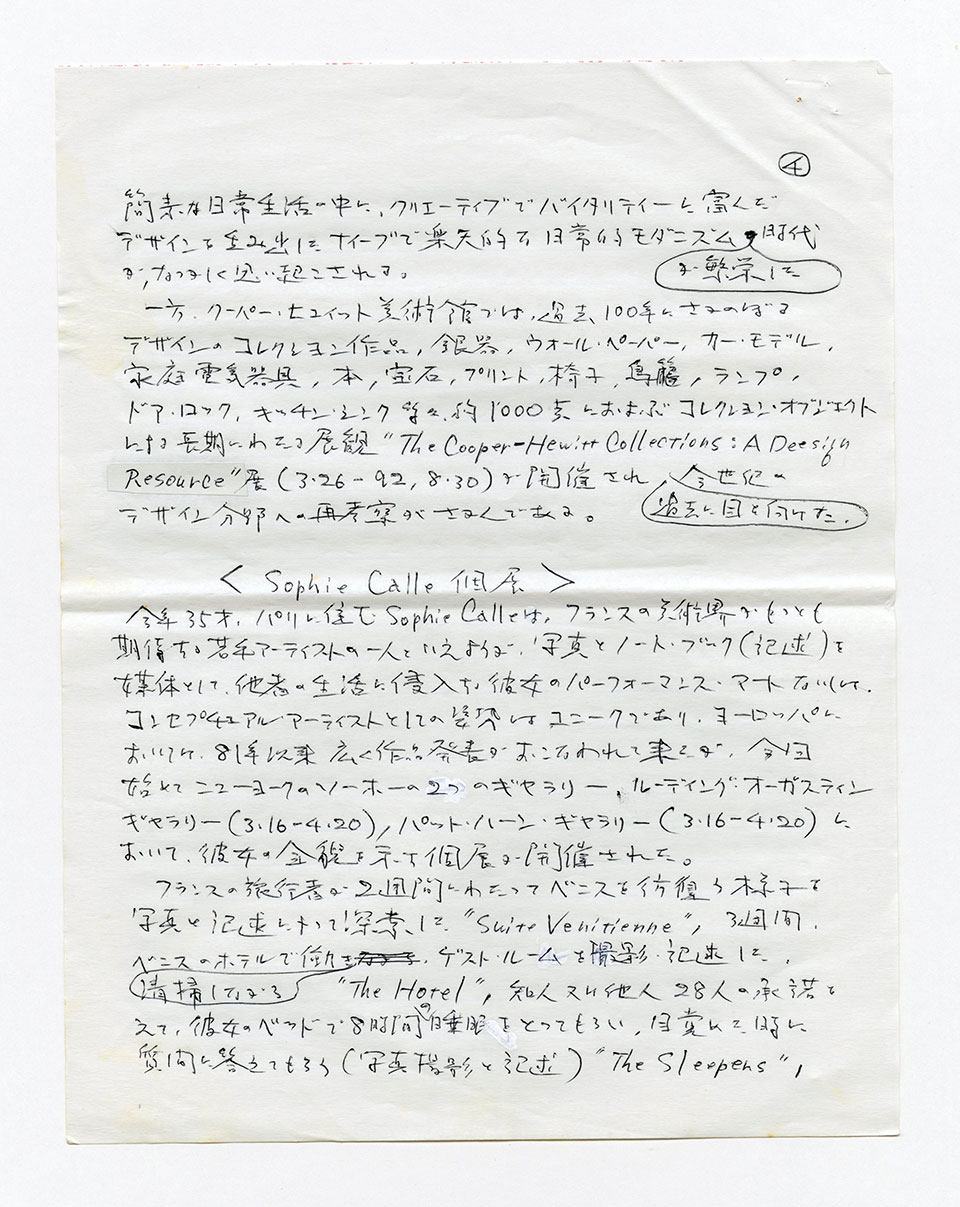 ④
簡素な日常生活の中に、クリエーティブでバイタリティーに富んだ
デザインを生み出した ナイーブで楽天的な日常的モダニズム 時代
が繁栄した
が、なつかしく思い起こされる。
一方、クーパー・ヒュイット美術館では、過去100年にさかのぼる
デザインのコレクション作品, 銀器, ウォール・ペーパー, カー・モデル,
家庭電気器具, 本, 宝石, プリント, 椅子, 鳥籠, ランプ,
ドア・ロック, キッチン・シンク 等々, 約1000点におよぶ コレクション・オブジェクト
による長期にわたる展観 "The Cooper-Hewitt Collections : A Deesign
Resource" 展 (3・26-92, 8・30) が開催され, 今世紀の
過去に目を向けた,
デザイン分野への再考察がさかんである。
< Sophie Calle 個展 >
今年35才, パリに住む Sophie Calleは, フランスの美術界がもっとも
期待する若手アーティストの一人といえようが, 写真とノート・ブック(記述)を
媒体として, 他者の生活に侵入する彼女のパーフォーマンス・アートないしは,
コンセプチュアル・アーティストとしての姿勢はユニークであり, ヨーロッパに
おいては, 81年以来 広く作品発表がおこなわれて来たが, 今回
始めてニューヨークのソーホーの2つのギャラリー, ルーディング・オーガスティン
ギャラリー (3・16-4・20), パット・ハーン・ギャラリー (3・16-4・20) に
おいて, 彼女の全貌を示す個展が開催された。
フランスの旅行者が2週間にわたってベニスを彷徨う様子を
写真と記述によって探索した "Suite Venitienne", 3週間,
ベニスのホテルで働き, ゲスト・ルームを撮影・記述した,
清掃しながら "The Hotel", 知人又は他人28人の承諾を
えて, 彼女のベッドで8時間の睡眠をとってもらい, 目覚めた時に
質問に答えてもらう (写真撮影と記述) "The Sleepers",